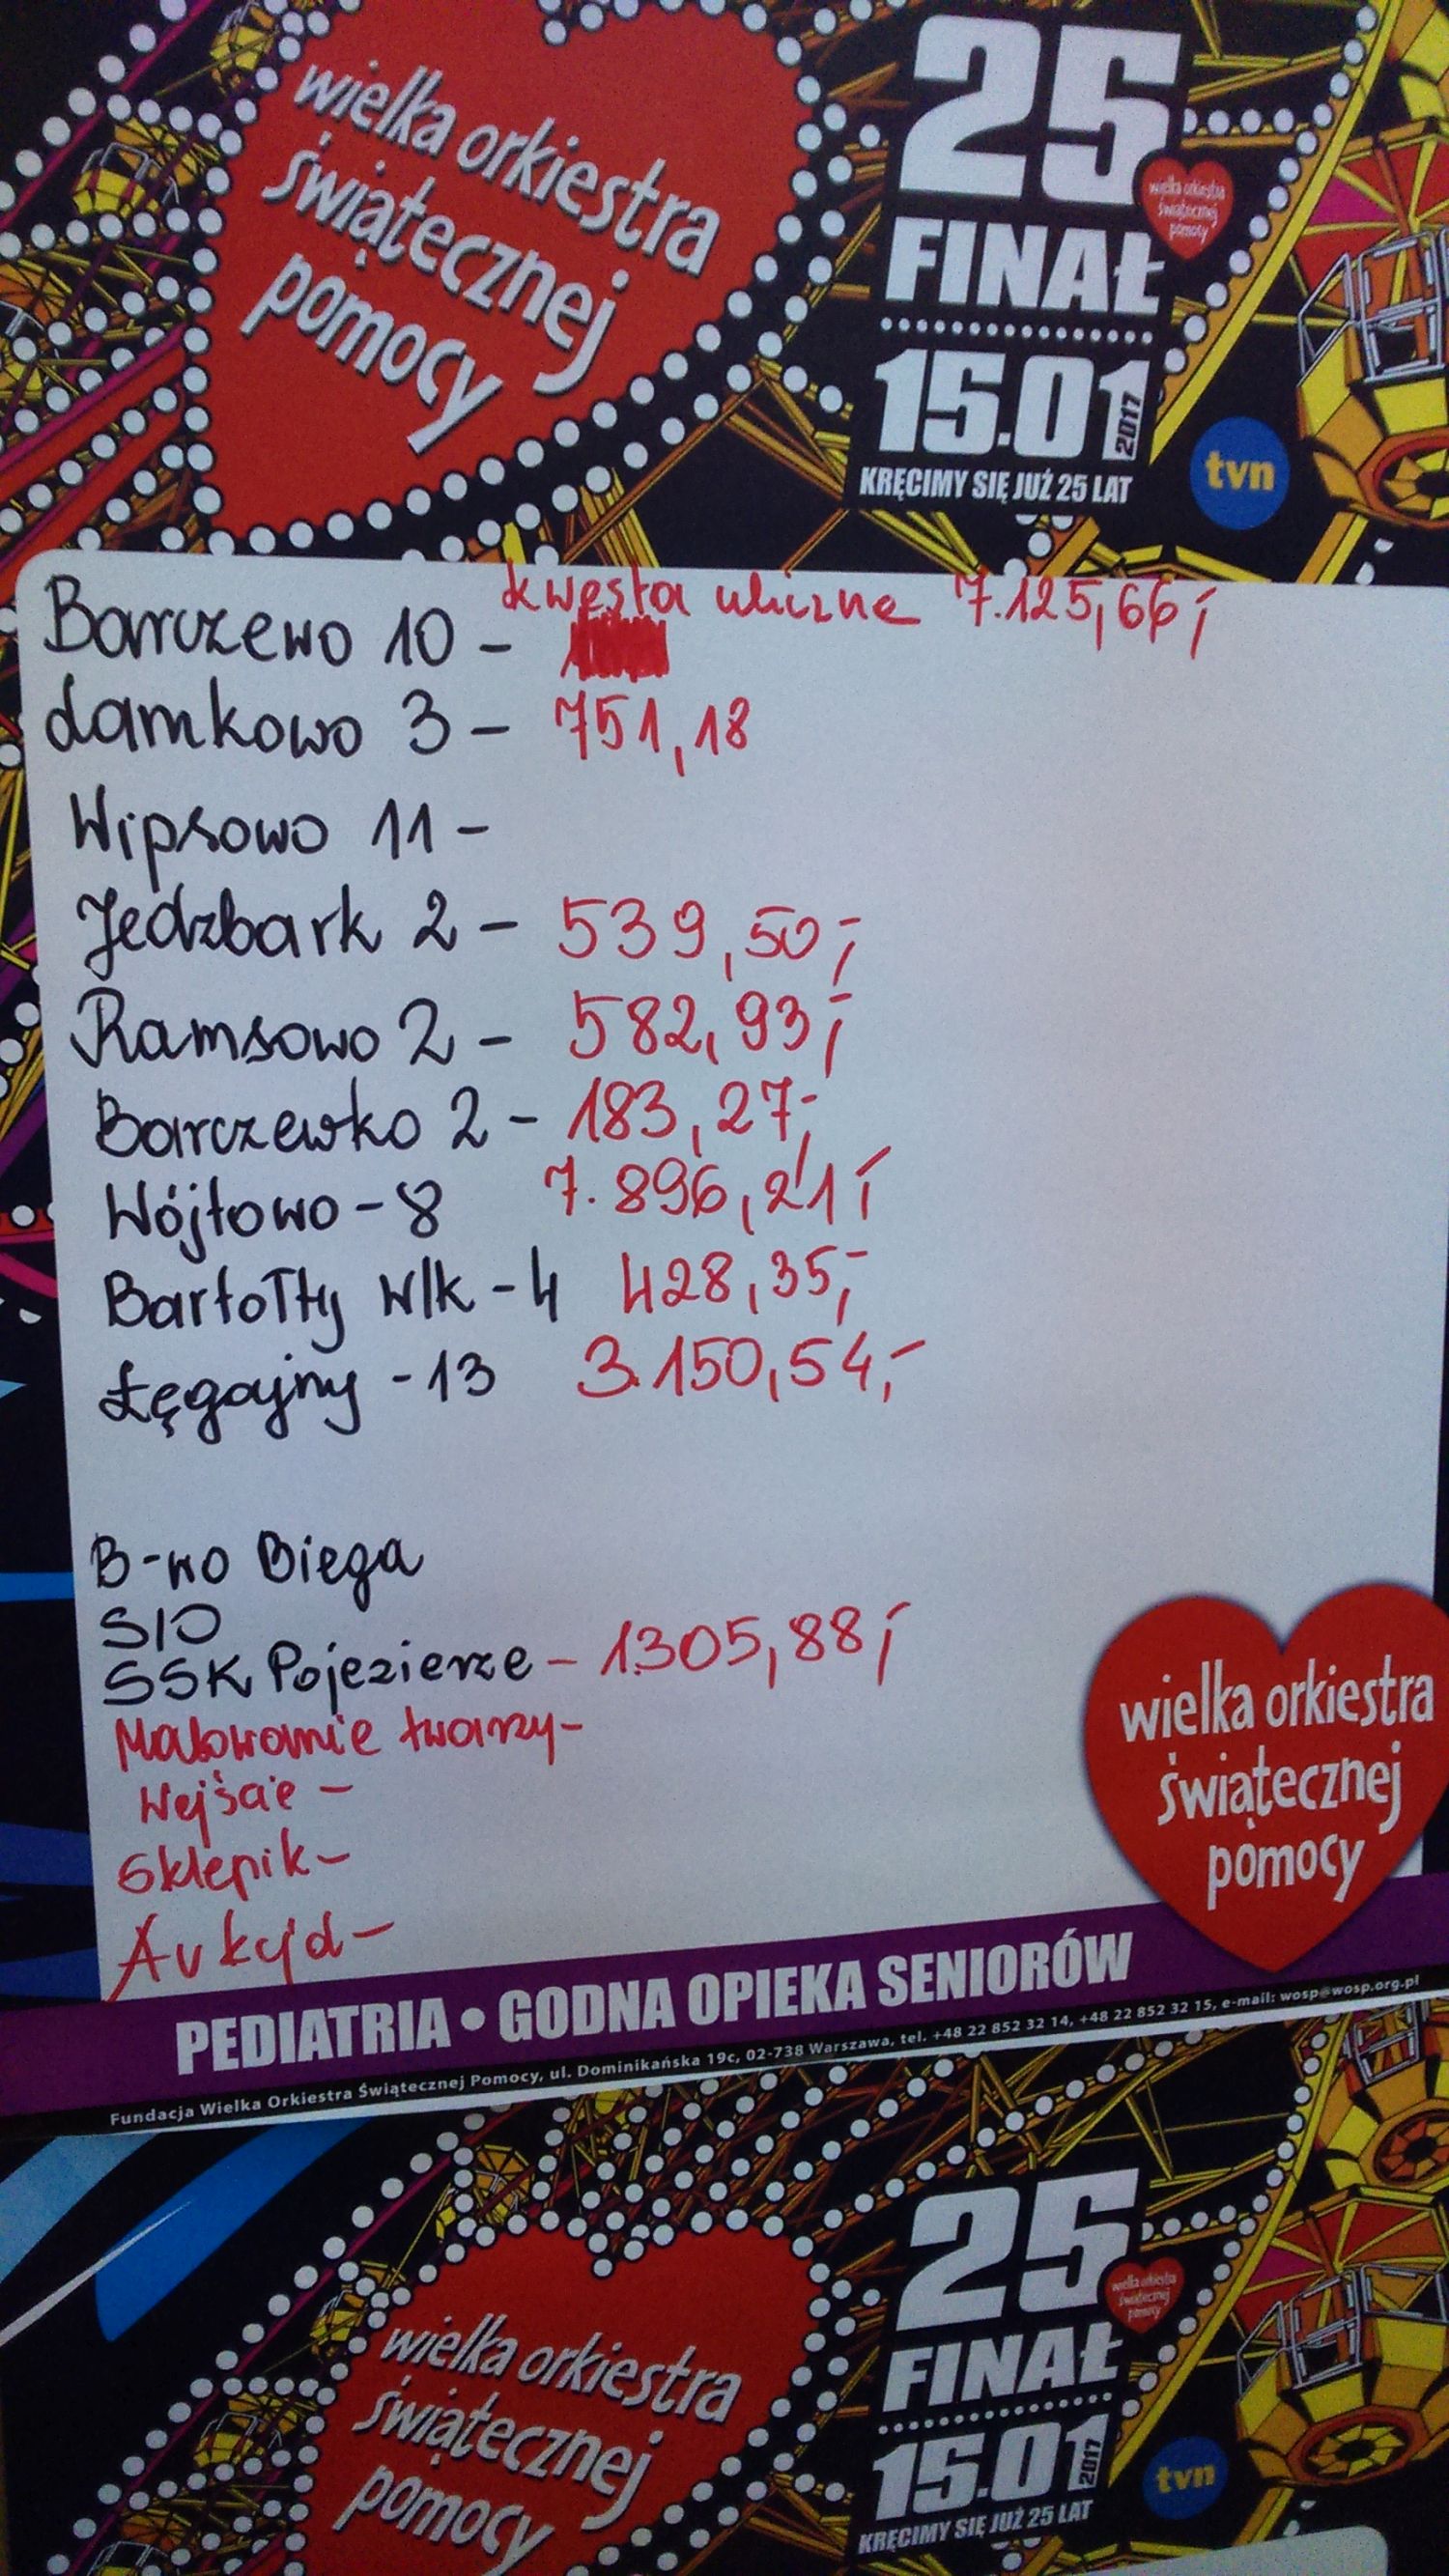 wielka orkiestra
świątecznej
pomocy
25
wielka orkiestra
świątecznej
pomocy
FINAŁ
15.01
2017
KRĘCIMY SIĘ JUŻ 25 LAT
tvn
kwesta uliczne 7.125,66,-
Barczewo 10 -
Lamkowo 3 - 751,18
Wipsowo 11 -
Jedzbark 2 - 539,50,-
Ramsowo 2 - 582,93,-
Barczewko 2 - 183,27,-
Wójtowo - 8 7.896,21,-
Bartołty Wlk - 4 428,35,-
Łęgajny - 13 3.150,54,-
B-wo Biega
SIO
SSK Pojezierze - 1.305,88,-
Malowanie twarzy -
Wejście -
Sklepik -
Aukcja -
wielka orkiestra
świątecznej
pomocy
PEDIATRIA • GODNA OPIEKA SENIORÓW
Fundacja Wielka Orkiestra Świątecznej Pomocy, ul. Dominikańska 19c, 02-738 Warszawa, tel. +48 22 852 32 14, +48 22 852 32 15, e-mail: wosp@wosp.org.pl
wielka orkiestra
świątecznej
pomocy
25
wielka orkiestra
świątecznej
pomocy
FINAŁ
15.01
2017
KRĘCIMY SIĘ JUŻ 25 LAT
tvn